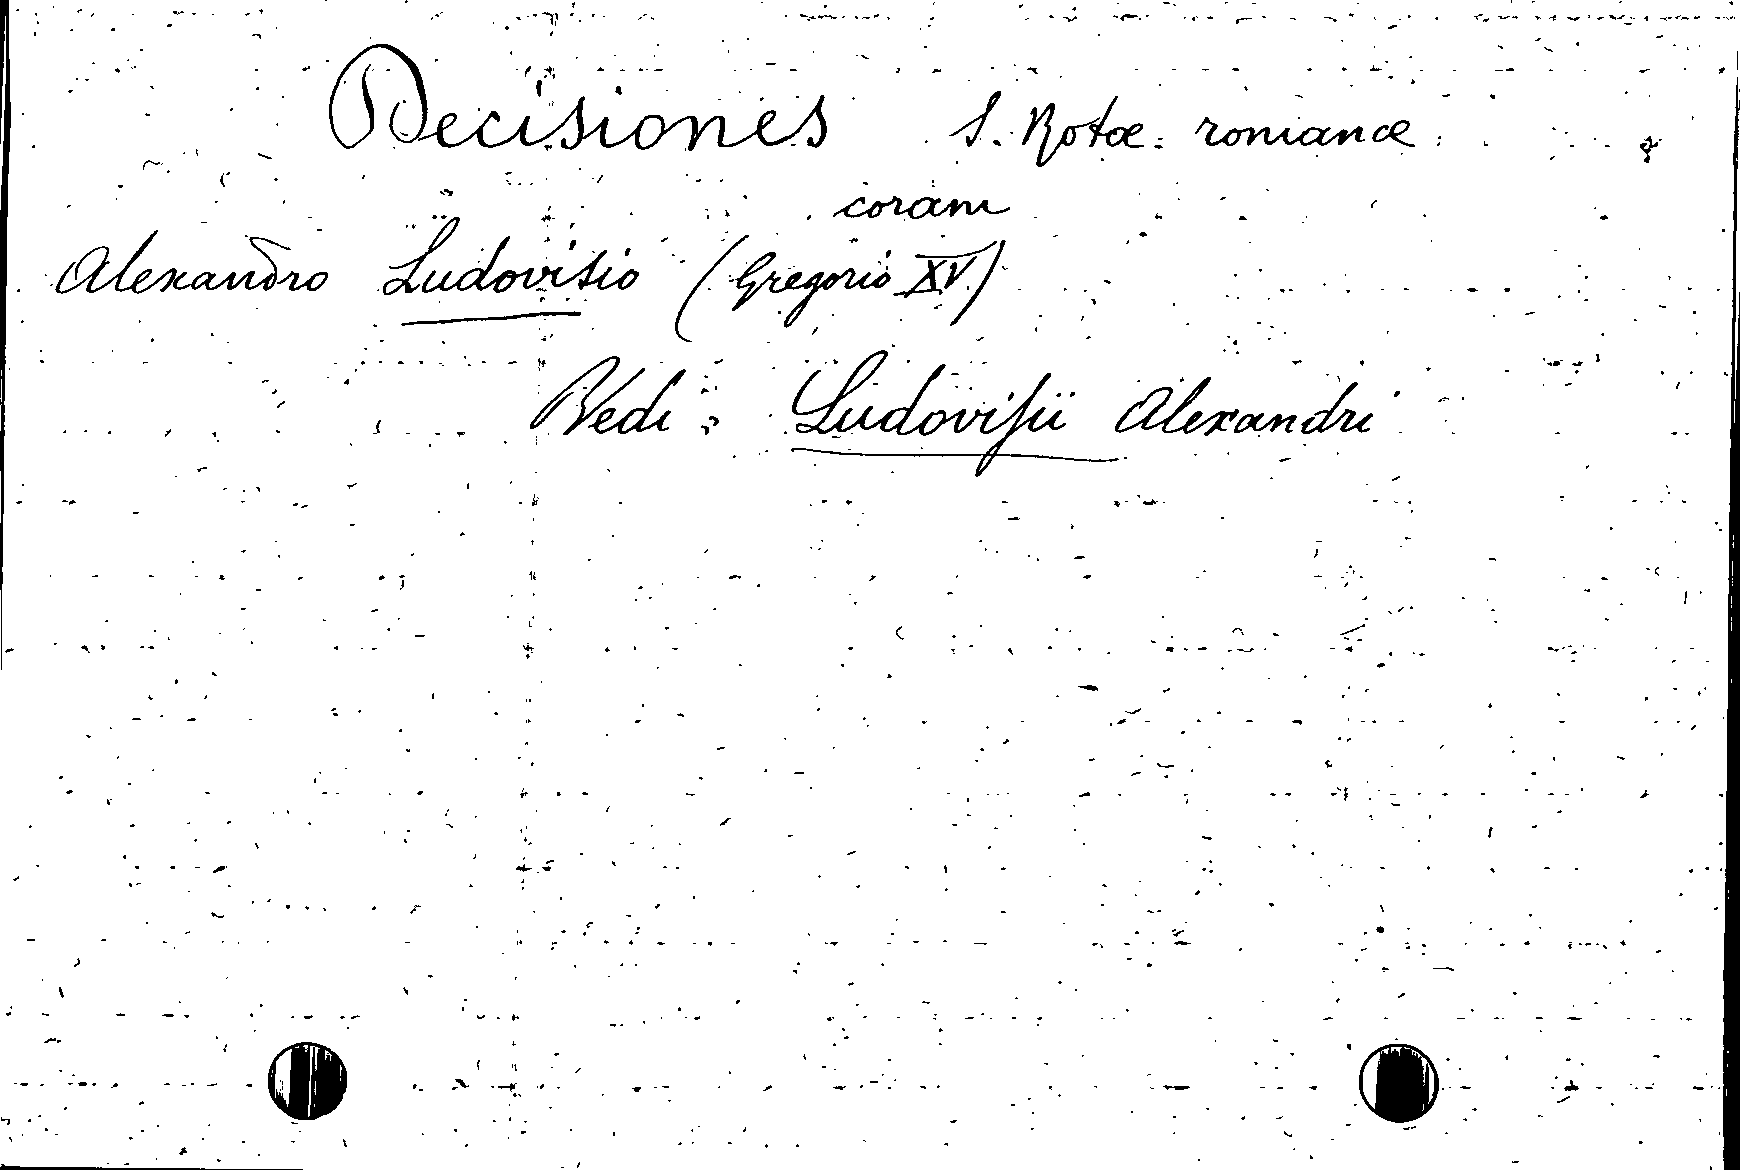 Decisiones S. Rotæ romanæ
coram
Alexandro Ludovisio (Gregorio XV)
Vedi: Ludovisii Alexandri